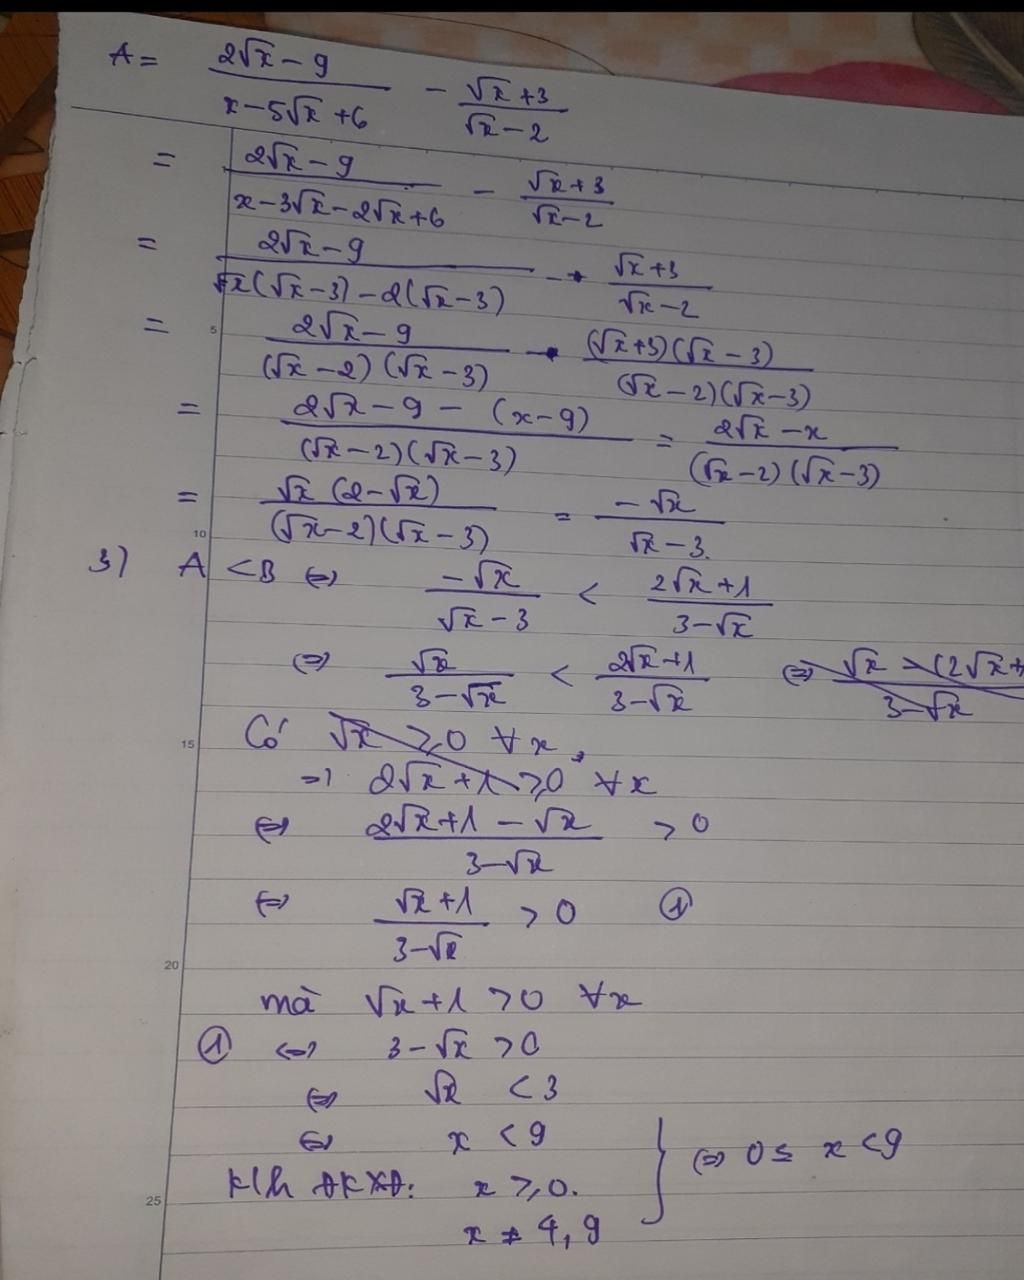 A = (2√x − 9)/(x − 5√x + 6) − (√x + 3)/(√x − 2)
= (2√x − 9)/(x − 3√x − 2√x + 6) − (√x + 3)/(√x − 2)
= (2√x − 9)/(√x(√x − 3) − 2(√x − 3)) − (√x + 3)/(√x − 2)
= 5 (2√x − 9)/((√x − 2)(√x − 3)) − (√x + 3)(√x − 3)/((√x − 2)(√x − 3))
= (2√x − 9 − (x − 9))/((√x − 2)(√x − 3)) = (2√x − x)/((√x − 2)(√x − 3))
= √x(2 − √x)/((√x − 2)(√x − 3)) = −√x/(√x − 3)
10
3) A < B ⇔ −√x/(√x − 3) < (2√x + 1)/(3 − √x)
⇔ √x/(3 − √x) < (2√x + 1)/(3 − √x) ⇔
15 Có √x ⩾ 0 ∀x
⇒ 2√x + 1 ⩾ 0 ∀x
⇔ (2√x + 1 − √x)/(3 − √x) > 0
⇔ (√x + 1)/(3 − √x) > 0 ①
20
mà √x + 1 > 0 ∀x
① ⇔ 3 − √x > 0
⇔ √x < 3
⇔ x < 9
⇔ 0 ≤ x < 9
25 Klh ĐKXĐ: x ⩾ 0.
x ≠ 4, 9